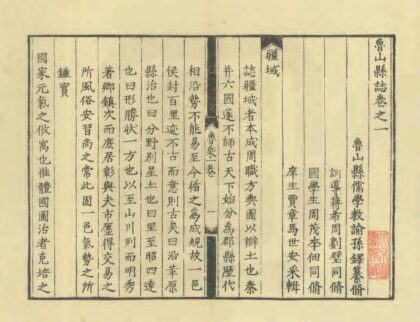 魯山縣誌卷之一
魯山縣儒學教諭孫鐸纂脩
訓導薛希周劉璧同脩
國學生周茂李佃同脩
庠生賈章馬世安采輯
疆域
誌疆域者本成周職方輿圖以辯土也秦
并六國遂不師古天下始分為郡縣歷代
相沿勢不能易至今循之為成規故一邑
侯封百里迹不古而意則古矣曰沿革原
縣治也曰分野別星土也曰里至耶四達
也曰形勝狀一方也以至山川列而明秀
著鄉鎮次而庶居彰與夫市廛得交易之
所風俗安習尚之常此固一邑氣勢之所
鍾實
國家元氣之攸寓也惟體國圖治者克培之
魯乘一卷
一